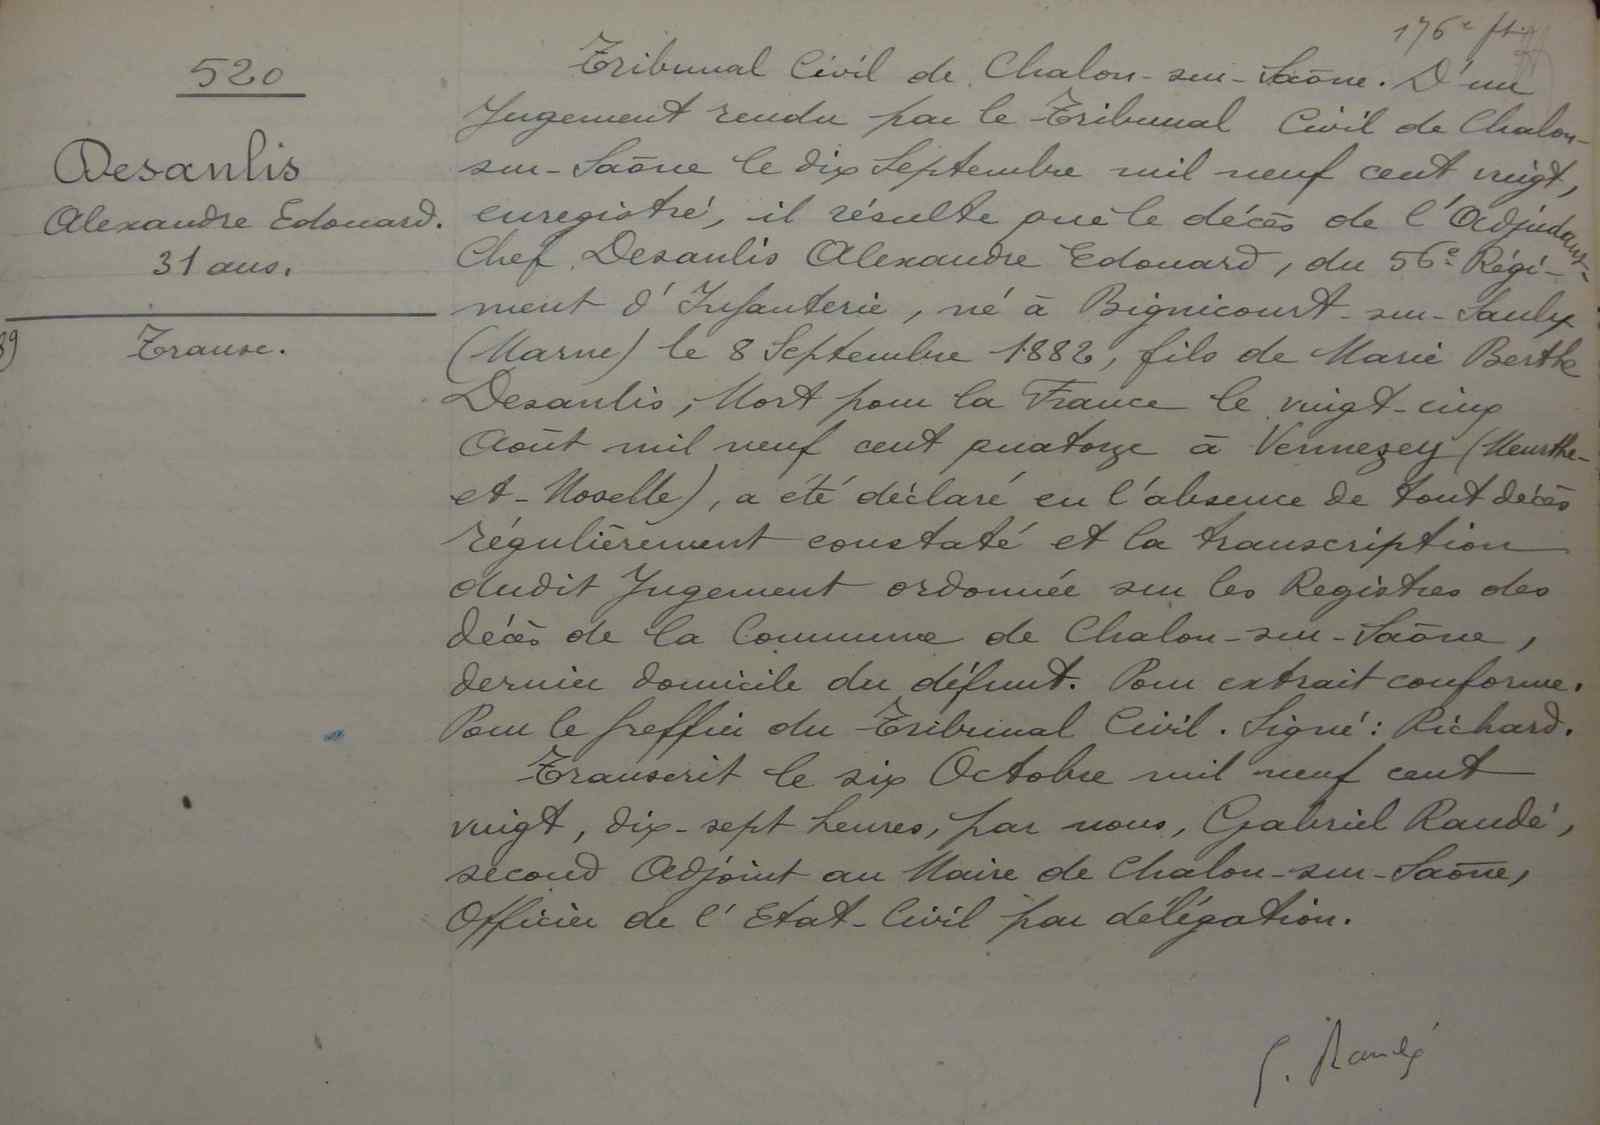 176e ft.
520
Desanlis
Alexandre Edouard.
31 ans.
Transc.
89
Tribunal Civil de Chalon-sur-Saône. D'un
Jugement rendu par le Tribunal Civil de Chalon-
sur-Saône le dix Septembre mil neuf cent vingt,
enregistré, il résulte que le décès de l'Adjudant-
Chef Desanlis Alexandre Edouard, du 56e Régi-
ment d'Infanterie, né à Bignicourt-sur-Saulx
(Marne) le 8 Septembre 1882, fils de Marie Berthe
Desanlis, Mort pour la France le vingt-cinq
Août mil neuf cent quatorze à Vennezey (Meurthe-
et-Moselle), a été déclaré en l'absence de tout décès
régulièrement constaté et la transcription
dudit Jugement ordonnée sur les Registres des
décès de la Commune de Chalon-sur-Saône,
dernier domicile du défunt. Pour extrait conforme.
Pour le Greffier du Tribunal Civil. Signé: Richard.
Transcrit le six Octobre mil neuf cent
vingt, dix-sept heures, par nous, Gabriel Randé,
second Adjoint au Maire de Chalon-sur-Saône,
Officier de l'Etat-Civil par délégation.
G. Randé